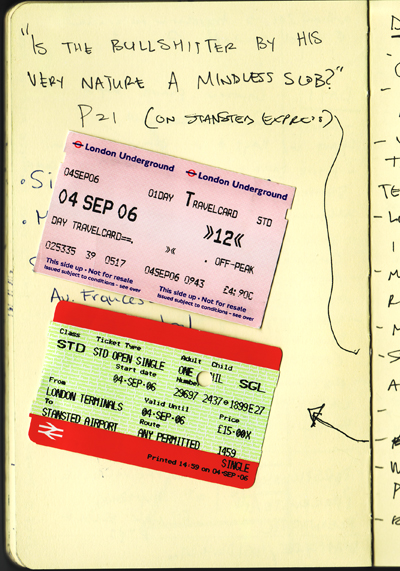 "IS THE BULLSHITTER BY HIS
VERY NATURE A MINDLESS SLOB?"
P21 (ON STANSTED EXPRESS)
London Underground London Underground
04SEP06 01DAY TRAVELCARD STD
04 SEP 06 »12«
DAY TRAVELCARD==. »« . OFF-PEAK
025335 39 0517 04SEP06 0943 £4:90C
This side up - Not for resale This side up - Not for resale
Issued subject to conditions - see over Issued subject to conditions - see over
Av. Frances
Class Ticket Type Adult Child
STD STD OPEN SINGLE ONE NIL SGL
Start date Number
04·SEP·06 29697 2437 1899E27
From Valid Until Price
LONDON TERMINALS 04·SEP·06 £15·00X
To Route
STANSTED AIRPORT ANY PERMITTED 1459
SINGLE
Printed 14:59 on 04·SEP·06